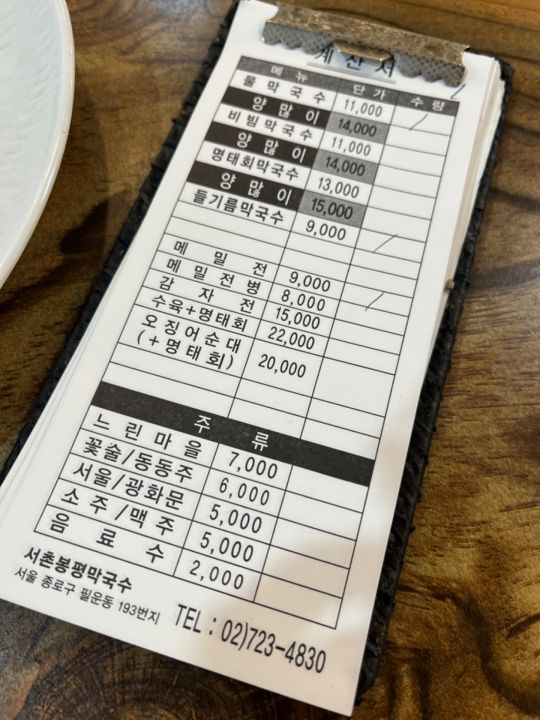 계산서
메뉴 단가 수량
물막국수 11,000
양많이 14,000
비빔막국수 11,000
양많이 14,000
명태회막국수 13,000
양많이 15,000
들기름막국수 9,000
메밀전 9,000
메밀전병 8,000
감자전 15,000
수육+명태회 22,000
오징어순대
(+명태회) 20,000
주류
느린마을 7,000
꽃술/동동주 6,000
서울/광화문 5,000
소주/맥주 5,000
음료수 2,000
서촌봉평막국수
서울 종로구 필운동 193번지 TEL : 02)723-4830